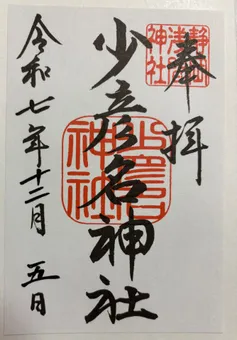 奉拝
少彦名神社
令和七年十二月 五日
静岡
浅間
神社